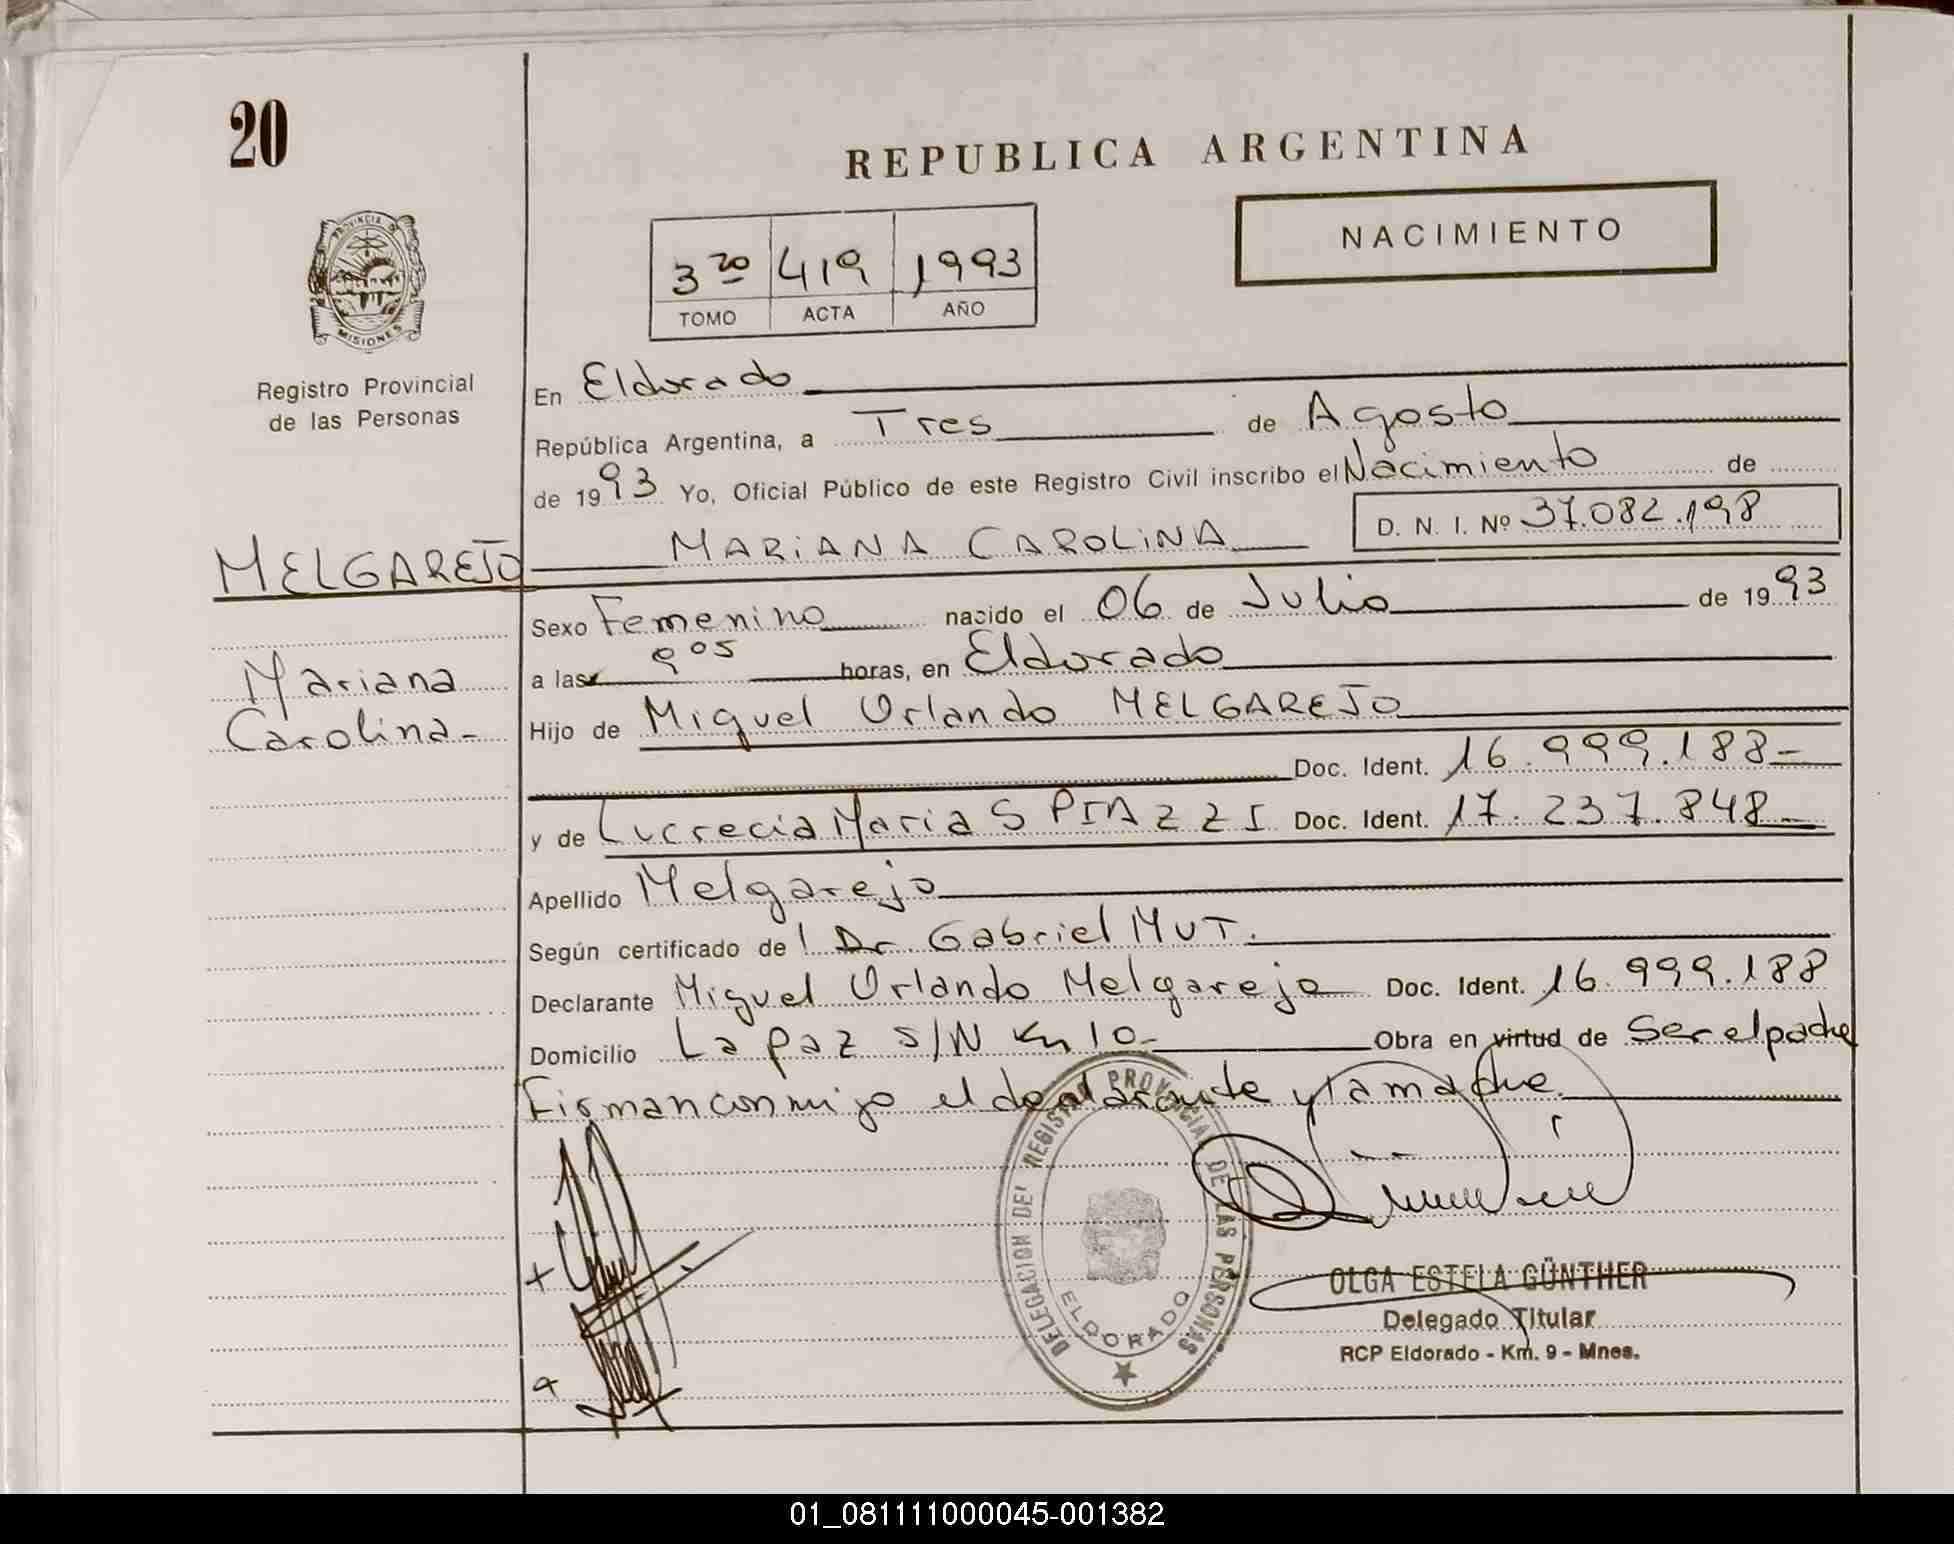 20
REPUBLICA ARGENTINA
NACIMIENTO
PROVINCIA D
MISIONES
Registro Provincial
de las Personas
3ro 419 1993
TOMO ACTA AÑO
En Eldorado
República Argentina, a Tres de Agosto
de 1993 Yo, Oficial Público de este Registro Civil inscribo el Nacimiento de
D. N. I. Nº 37.082.198
MELGAREJO MARIANA CAROLINA
Sexo Femenino nacido el 06 de Julio de 1993
Mariana
Carolina-
a las 9 05 horas, en Eldorado
Hijo de Miguel Orlando MELGAREJO
Doc. Ident. 16.999.188-
y de Lucrecia Maria SPIAZZI Doc. Ident. 17.237.848-
Apellido Melgarejo
Según certificado de l Dr Gabriel MUT.
Declarante Miguel Orlando Melgarejo Doc. Ident. 16.999.188
Domicilio La paz S/N Km 10- Obra en virtud de Ser el padre
Firman conmigo el declarante y la madre.
DELEGACION DEL REGISTRO PROVINCIAL DE LAS PERSONAS
ELDORADO
OLGA ESTELA GÜNTHER
Delegado Titular
RCP Eldorado - Km. 9 - Mnes.
01_081111000045-001382